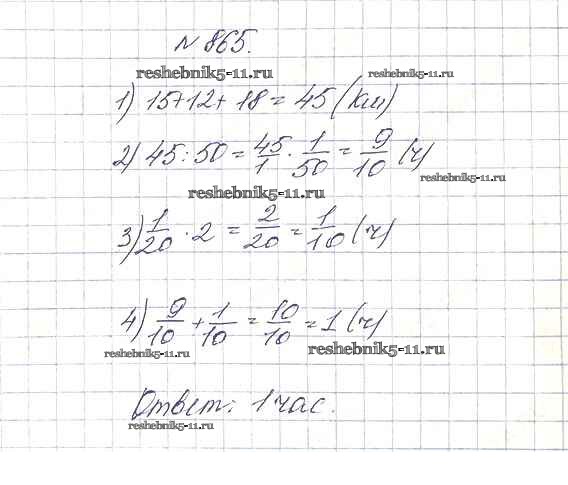 № 865.
reshebnik5-11.ru reshebnik5-11.ru
1) 15+12+18=45 (км)
2) 45:50 = 45/1 · 1/50 = 9/10 (ч)
reshebnik5-11.ru reshebnik5-11.ru
3) 1/20 · 2 = 2/20 = 1/10 (ч)
4) 9/10 + 1/10 = 10/10 = 1 (ч)
reshebnik5-11.ru reshebnik5-11.ru
Ответ: 1 час.
reshebnik5-11.ru